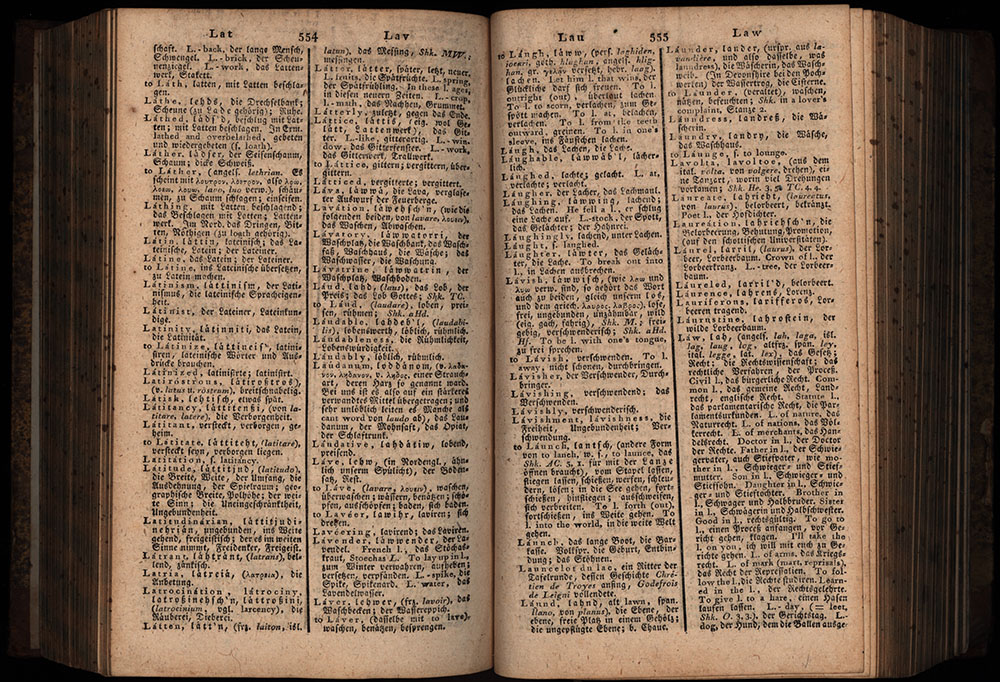 Lat 554 Lav
schaft. L.-back, der lange Mensch,
Schwengel. L.-brick, der Scheu-
nenziegel. L.-work, das Latten-
werk, Stakett.
to Láth, latten, mit Latten beschla-
gen.
Láthe, lehds, die Drechselbank;
Scheune (zu Lade gehörig); Ruhe.
Láthed, lädſ'd, beſchlag mit Lat-
ten; mit Latten beschlagen. In Erm.
lathed and overbelathed, gebeten
und wiedergebeten (s. loath).
Láther, lädſer, der Seifenschaum,
Schaum; dicke Schweiß.
to Láther, (angels. lethrian. Es
scheint mit λουτρον, λουτρον, also λοω,
λουω, lavo, luo verw.), schäu-
men, zu Schaum schlagen; einseifen.
Láthing, mit Latten beschlagend;
das Beschlagen mit Latten; Latten-
werk. (In Nord. das Dringen, Bit-
ten, Nöthigen (zu loath gehörig).
Látin, lättin, lateinisch; das La-
teinische, Latein; der Lateiner.
Látine, das Latein; der Lateiner.
to Látine, ins Lateinische übersetzen,
zu Latein machen.
Látinism, lättinism, der Lati-
nismus, die lateinische Spracheigen-
heit.
Látinist, der Lateiner, Lateinkundi-
ge.
Latinity, lätinniti, das Latein,
die Latinität.
to Látinize, lättineis', latini-
siren, lateinische Wörter und Aus-
drücke brauchen.
Látinized, latinisirte; latinisirt.
Latiróstrous, lätirostros),
(v. latus u. rostrum), breitschnabelig.
Látish, lehtisch, etwas spät.
Látitancy, lättitenßi, (von la-
titare, latere), die Verborgenheit.
Látitant, versteckt, verborgen, ge-
heim.
to Látitate, lättiteht, (latitare),
versteckt seyn, verborgen liegen.
Latitation, s. latitancy.
Látitude, lättitjud, (latitudo),
die Breite, Weite, der Umfang, die
Ausdehnung, der Spielraum; geo-
graphische Breite, Polhöhe; der wei-
te Sinn; die Uneingeschränktheit,
Ungebundenheit.
Latitudinárian, lättitjudi-
nehriän, ungebunden, ins Weite
gehend, freigeistisch; der es im weiten
Sinne nimmt, Freidenker, Freigeist.
Látrant, lähtränt, (latrans), bel-
lend, zänkisch.
Latría, lätreiä, (λατρεια), die
Anbetung.
Latrocinátion, látrociny,
lätroßinehsch'n, lättroßini,
(latrocinium, vgl. larceny), die
Räuberei, Dieberei.
Látten, lätt'n, (frz. laiton, isl.
latun), das Messing, Shk. MW.;
messingen.
Látter, lätter, später, letzt, neuer.
L. fruits, die Spätfrüchte. L. spring,
der Spätfrühling. In these l. ages,
in diesen neuern Zeiten. L.-crop,
l.-math, das Nachheu, Grummet.
Látterly, zuletzt, gegen das Ende.
Láttice, lättis, (eig. wol Ge-
lätt, Lattenwerk), das Git-
ter. L.-like, gitterartig. L.-win-
dow, das Gitterfenster. L.-work,
das Gitterwerk, Traillwerk.
to Láttice, gittern; vergittern, über-
gittern.
Látticed, vergitterte; vergittert.
Láva, läwä, die Lava, verglase-
ter Auswurf der Feuerberge.
Lavátion, läwehsch'n, (wie die
folgenden beiden, von lavare, λουειν),
das Waschen, Abwaschen.
Lávatory, läwwatorri, der
Waschplatz, die Waschbank, das Wasch-
faß, Waschhaus, die Wäsche; das
Waschwasser, die Waschung.
Lávatrine, läwwatrin, der
Waschplatz, Waschboden.
Láud, lahd, (laus), das Lob, der
Preis; das Lob Gottes; Shk. TC.
to Láud, (laudare) loben, prei-
sen, rühmen; Shk. aHd
Láudable, lahdeb'l, (laudabi-
lis), lobenswerth, löblich, rühmlich.
Láudableness, die Rühmlichkeit,
Lobenswürdigkeit.
Láudably, löblich, rühmlich.
Láudanum, loddänom, (v. λαδα-
νον, ληδανον, v. ληδος, einer Strauch-
art, deren Harz so genannt ward.
Bei uns ist es also auf ein stärkeres
verwandtes Mittel übergetragen; und
sehr unlöblich leiten es Manche als
cant word von laudo ab), das Lau-
danum, der Mohnsaft, das Opiat,
der Schlaftrunk.
Láudative, lahdätiw, lobend,
preisend.
Láve, lehw, (in Nordengl., ähn-
lich unserm Spülicht), der Boden-
satz, Rest.
to Láve, (lavare, λουειν), waschen,
überwaschen; wässern, benätzen; schö-
pfen, ausschöpfen; baden, sich baden.
to Lavéer, läwihr, laviren; sich
drehen.
Lavéering, lavirend; das Laviren.
Lávender, läwwender, der La-
vendel. French l., das Stöchas-
kraut, Stoechas L. To lay up in l.,
zum Winter verwahren, aufheben;
versetzen, verpfänden. L.-spike, die
Spike, Spikenard. L. water, das
Lavendelwasser.
Láver, lehwer, (frz. lavoir), das
Waschbecken; der Wasserreppich.
to Láver, (dasselbe mit to lave),
waschen, benätzen, besprengen.
Lau 555 Law
to Láugh, läww, (pers. laghiden,
goth. hlaghan, angels. hlig-
han, gr. γελαν versetzt, hebr. laag).
lachen. Let him l. that wins, der
Glückliche darf sich freuen. To l.
outright (out), überlaut lachen.
To l. to scorn, verlachen, zum Ge-
spött machen. To l. at, belachen,
verlachen. To l. from the teeth
outward, greinen. To l. in one's
sleeve, ins Fäustchen lachen.
Láugh, das Lachen, die Lache.
Láughable, läwwäb'l, lächer-
lich.
Láughed, lachte; gelacht. L. at,
verlachte; verlacht.
Láugher, der Lacher, das Lachmaul.
Láughing, läwwing, lachend;
das Lachen. He fell a l., er schlug
eine Lache auf. L.-stock, der Spott,
das Gelächter; der Hahnrei.
Láughingly, lachend, unter Lachen.
Láught, s. laughed.
Láughter, läwter, das Geläch-
ter, die Lache. To break out into
l., in Lachen ausbrechen.
Lávish, läwwisch, (wie λαω und
λουω verw. sind, so gehört das Wort
auch zu beiden, gleich unserm los,
und dem griech. λαυρος, λαβρος), lose,
frei, ungebunden, unzähmbar, wild
(eig. gach, fahrig), Shk. M.; frei-
gebig, verschwenderisch; Shk. aHd.
Hf. To be l. with one's tongue,
zu frei sprechen.
to Lávish, verschwenden. To l.
away, nicht schonen, durchbringen.
Lávisher, der Verschwender, Durch-
bringer.
Lávishing, verschwendend; das
Verschwenden.
Lávishly, verschwenderisch.
Lávishment, lávishness, die
Freiheit, Ungebundenheit; Ver-
schwendung.
to Láunch, lantsch, (andere Form
von to lanch, w. s., to launce, das
Shk. AC. 3, 1. für mit der Lanze
öffnen braucht), vom Stapel lassen,
stiegen lassen, schießen, werfen, schleu-
dern, lösen; in die See gehen, fort-
schießen, hinstiegen; ausschweifen,
sich verbreiten. To l. forth (out)
fortschießen, ins Weite gehen. To
l. into the world, in die weite Welt
gehen.
Láunch, das lange Boot, die Bar-
kasse. Volksspr. die Geburt, Entbin-
dung; das Stöhnen.
Launcelot du lac, ein Ritter der
Tafelrunde, dessen Geschichte Chré-
tien de Troyes anfing, Godefrois
de Leigni vollendete.
Láund, lahnd, alt lawn, span.
llano, von planus), die Ebene, der
ebene, freie Platz in einem Gehölz;
die ungepflügte Ebene; b. Chauc.
Láunder, lander, (urspr. aus la-
vandière, und also dasselbe, was
laundress), die Wäscherin, das Wasch-
weib. (In Devonshire bei den Poch-
werken) der Wassertrog, die Cisterne.
to Láunder, (veraltet), waschen,
nätzen, befeuchten; Shk. in a lover's
complaint. Stanze 2.
Láundress, landreß, die Wä-
scherin.
Láundry, landry, die Wäsche,
das Waschhaus.
to Láunge, s. to lounge.
Lavolta, lavoltoe, (aus dem
ital. volta, von volgere, drehen), ei-
ne Tanzart, worin viel Drehungen
vorkamen; Shk. He. 3. 5. TC. 4. 4.
Láureate, lahrieht, (laureatus,
von laurus), belorbeert, bekränzt.
Poet l., der Hofdichter.
Laureátion, lahriehsch'n, die
Belorbeerung, Behutung, Promotion,
(auf den schottischen Universitäten).
Láurel, larril, (laurus), der Lor-
beer, Lorbeerbaum. Crown of l., der
Lorbeerkranz. L.-tree, der Lorbeer-
baum.
Láureled, larril'd, belorbeert.
Láurence, lahrens, Lorenz.
Lauríferons, larifferos, Lor-
beeren tragend.
Laurustine, lahrostein, der
wilde Lorbeerbaum.
Láw, lah, (angels. lah, laga, isl.
lag, laug, log, altfrz, span. ley,
ital. legge, lat. lex), das Gesetz;
Recht; die Rechtswissenschaft; das
rechtliche Verfahren, der Proceß.
Civil l., das bürgerliche Recht. Com-
mon l., das gemeine Recht, Land-
recht, englische Recht. Statute l.,
das parlamentarische Recht, die Par-
lamentsurkunden. L. of nature, das
Naturrecht. L. of nations, das Völ-
kerrecht. L. of merchants, das Han-
delsrecht. Doctor in l., der Doctor
der Rechte. Father in l., der Schwie-
gervater, auch Stiefvater, wie mo-
ther in l., Schwieger- und Stief-
mutter. Son in l., Schwieger- und
Stiefsohn. Daughter in l., Schwie-
ger- und Stieftochter. Brother in
l., Schwager und Halbbruder. Sister
in l., Schwägerin und Halbschwester.
Good in l., rechtsgültig. To go to
l., einen Proceß anfangen, vor Ge-
richt gehen, klagen. I'll take the
l. on you, ich will mit euch zu Ge-
richte gehen. L. of arms, das Kriegs-
recht. L. of mark (mart, reprisals),
das Recht der Repressalien. To fol-
low the l., die Rechte studiren. Learn-
ed in the l., der Rechtsgelehrte.
To give l. to a hare, einen Hasen
laufen lassen. L.-day, (= leet,
Shk. O. 3. 3.), der Gerichtstag. L.-
dog, der Hund, dem die Ballen ausge-